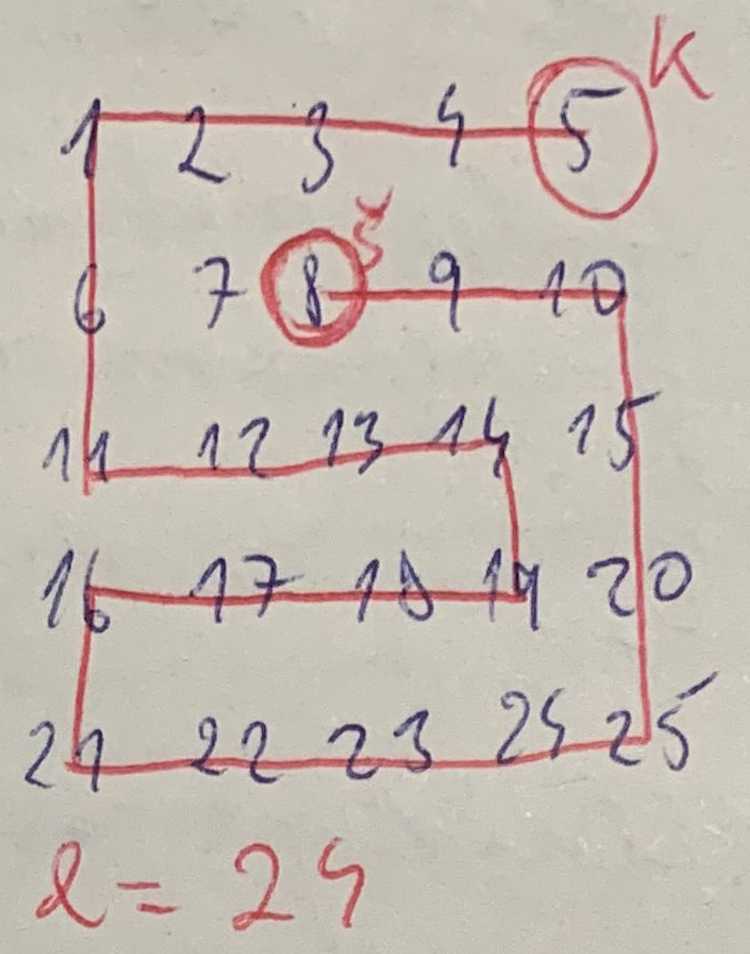 K
1 2 3 4 5
Š
6 7 8 9 10
11 12 13 14 15
16 17 18 19 20
21 22 23 24 25
l = 24